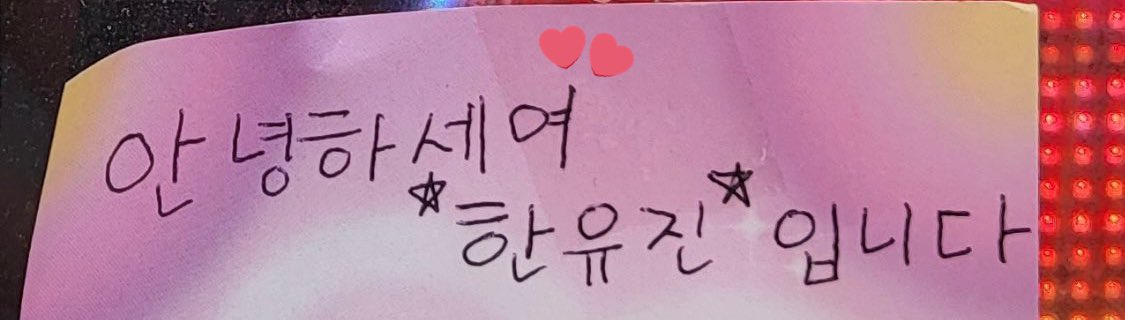 안녕하세여
☆한유진☆입니다